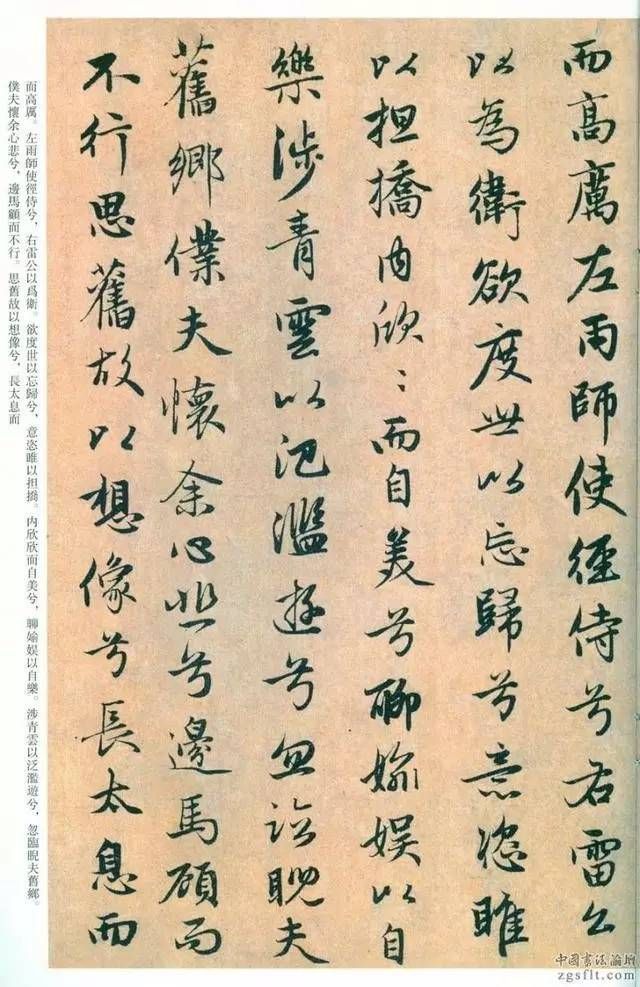 而高厲左雨師使徑侍兮右雷公
以為衛欲度世以忘歸兮意恣睢
以担撟內欣〻而自美兮聊媮娛以自
樂涉青雲以汜濫遊兮忽臨睨夫
舊鄉僕夫懷余心悲兮邊馬顧而
不行思舊故以想像兮長太息而
而高厲。左雨師使徑侍兮，右雷公以爲衛。欲度世以忘歸兮，意恣睢以担撟。内欣欣而自美兮，聊媮娛以自樂。涉青雲以泛濫遊兮，忽臨睨夫舊鄉。
僕夫懷余心悲兮，邊馬顧而不行。思舊故以想像兮，長太息而
中國書法論壇
zgsflt.com